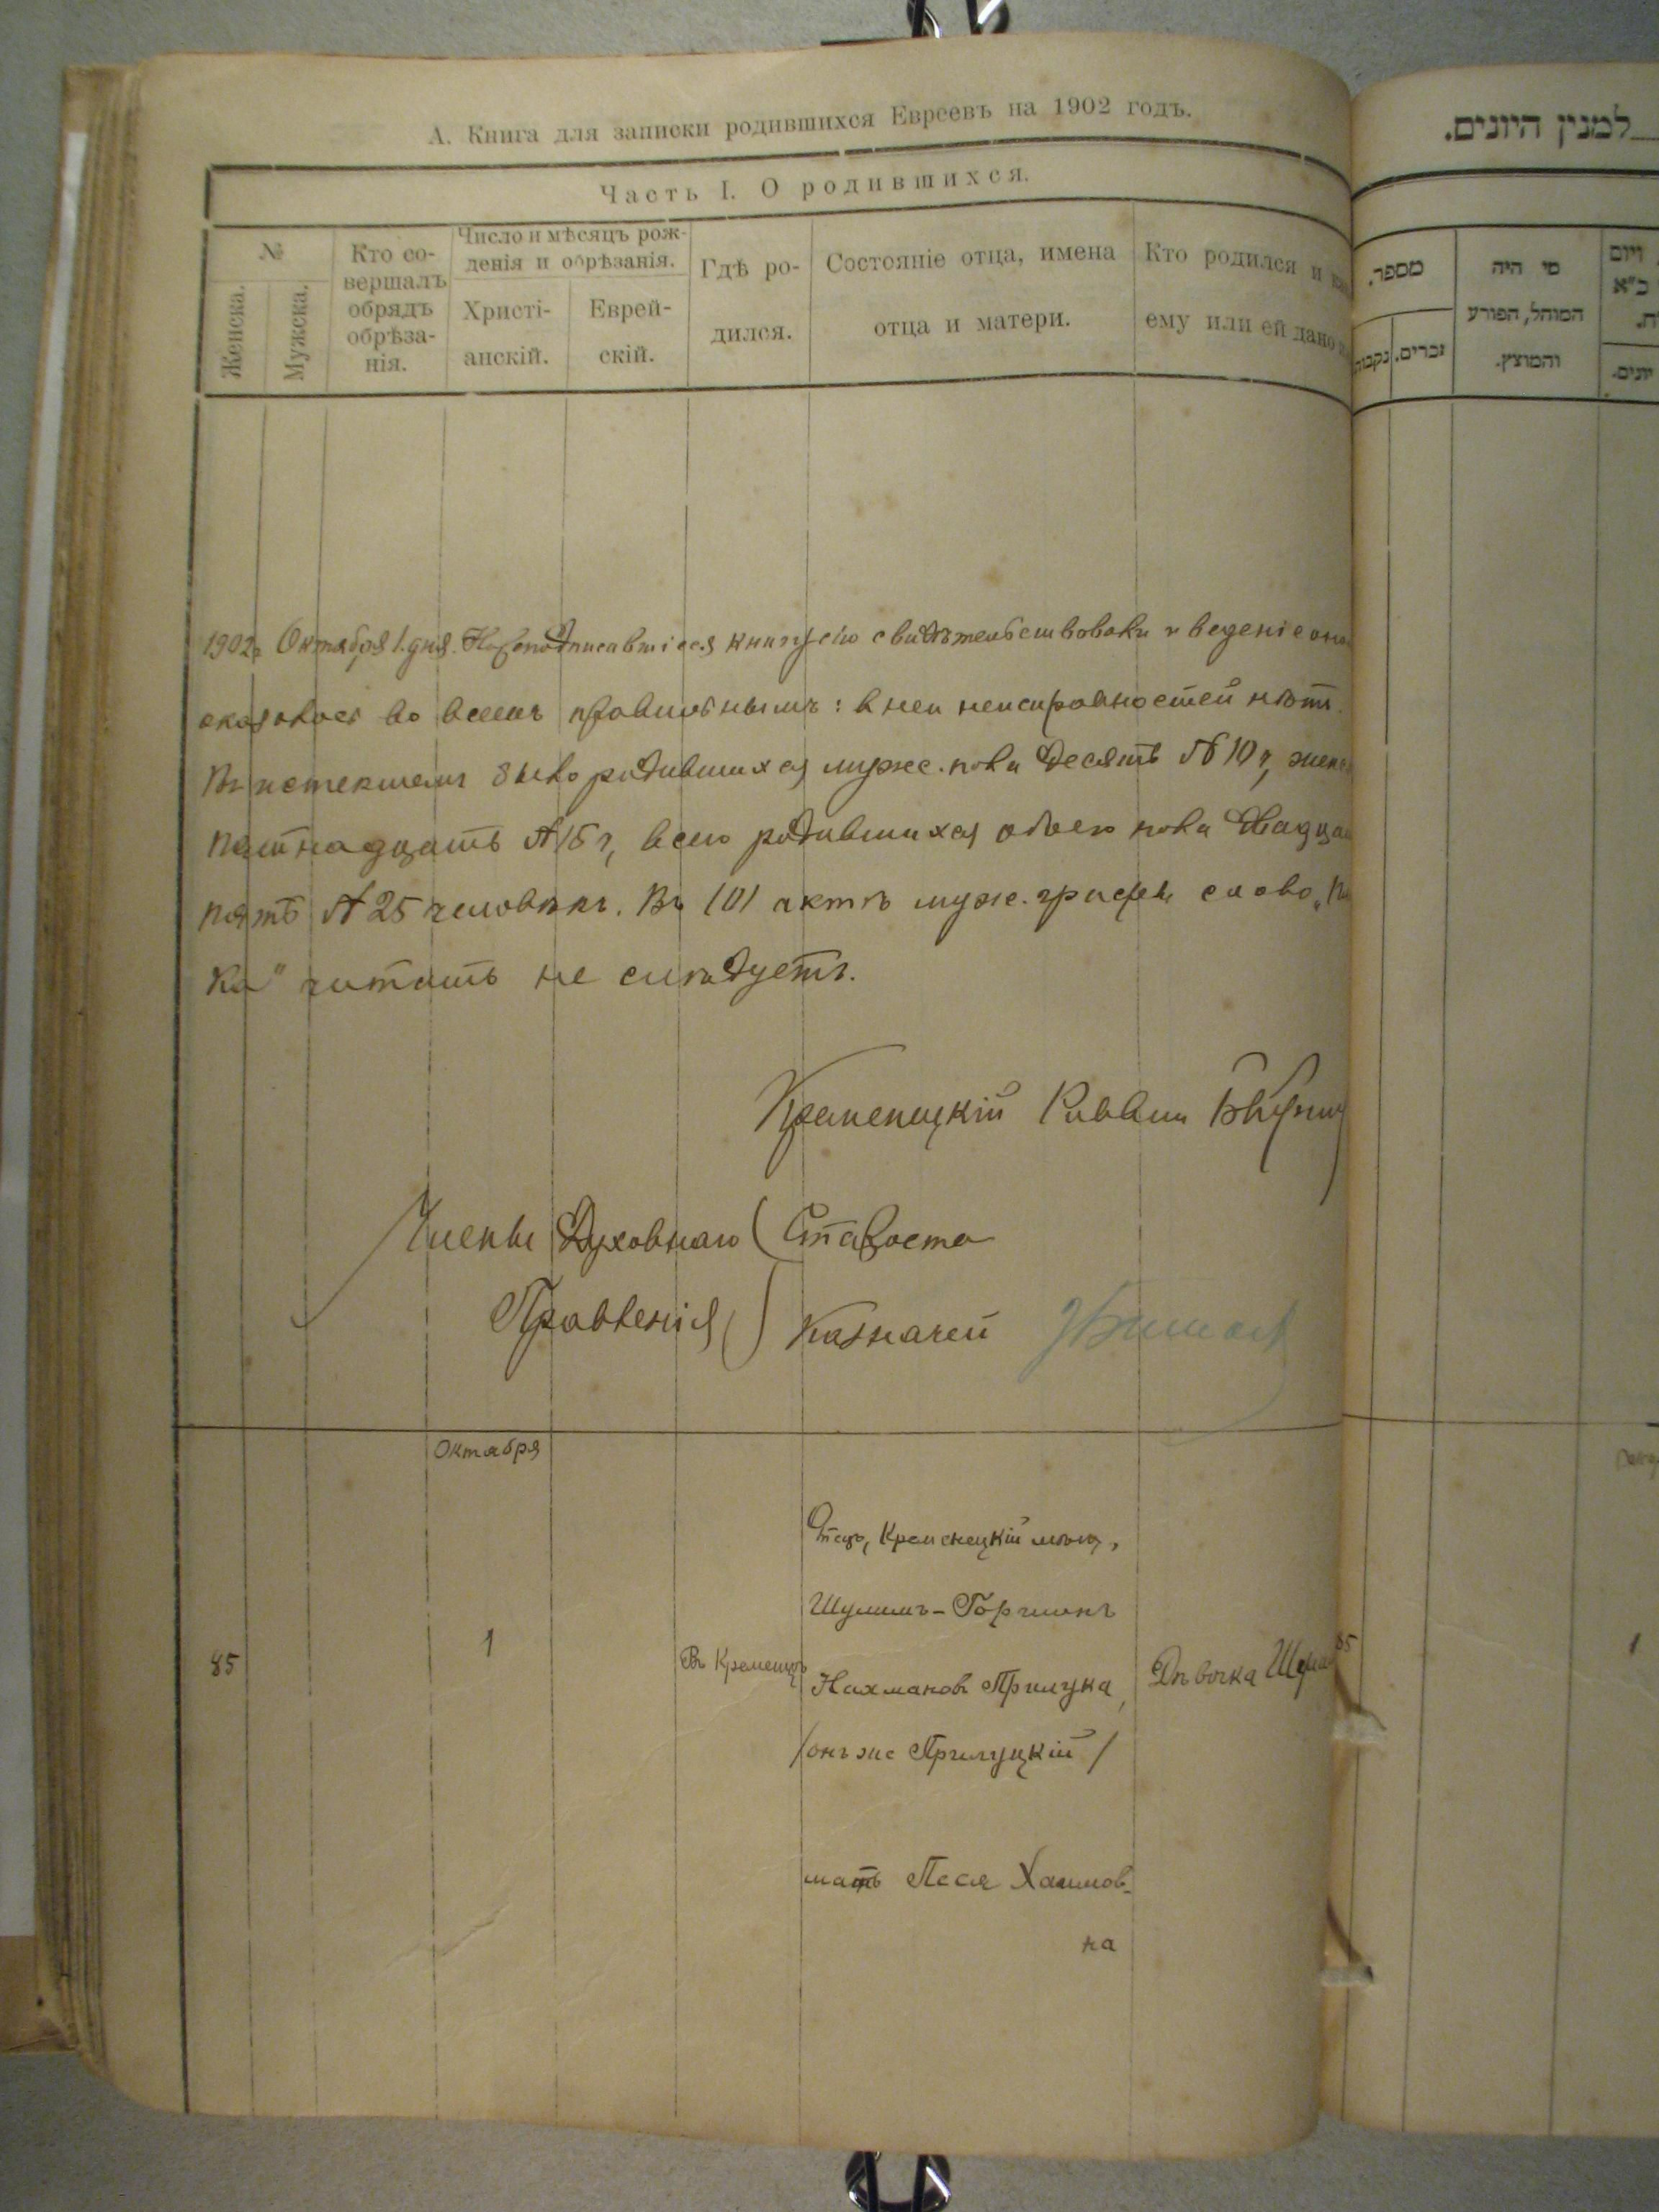 А. Книга для записки родившихся Евреевъ на 1902 годъ.
Часть I. О родившихся.
№
Женска.
Мужска.
Кто со-
вершалъ
обрядъ
обрѣза-
нія.
Число и мѣсяцъ рож-
денія и обрѣзанія.
Христі-
анскій.
Еврей-
скій.
Гдѣ ро-
дился.
Состояніе отца, имена
отца и матери.
Кто родился и
ему или ей дано
1902г Октября 1. дня. Нижеподписавшіеся книгу сію свидѣтельствовали и веденіе
оказалось во всемъ правильнымъ: в ней неисправностей нѣтъ.
Въ истекшемъ было родившихся мужс. пола десять № 10 ч,
пятнадцать № 15 ч, всего родившихся обоего пола
пять № 25 человѣкъ. Въ 101 актѣ муж. графы слово
ка" читать не слѣдуетъ.
Кременецкій Раввин
Члены Духовнаго ( Староста
Правленія ) Казначей
Октября
85
1
Въ Кременцѣ
Отецъ, Кременецкій мѣщ,
Шулимъ-
Нахмановъ Прилука,
/онъ же Прилуцкій/
мать Песя Хаимов-
на
Дѣвочка
85
למנין היונים.
מספר.
נקבות
זכרים.
מי היה
המוהל, הפורע
והמוצץ.
ויום
יונים.
1